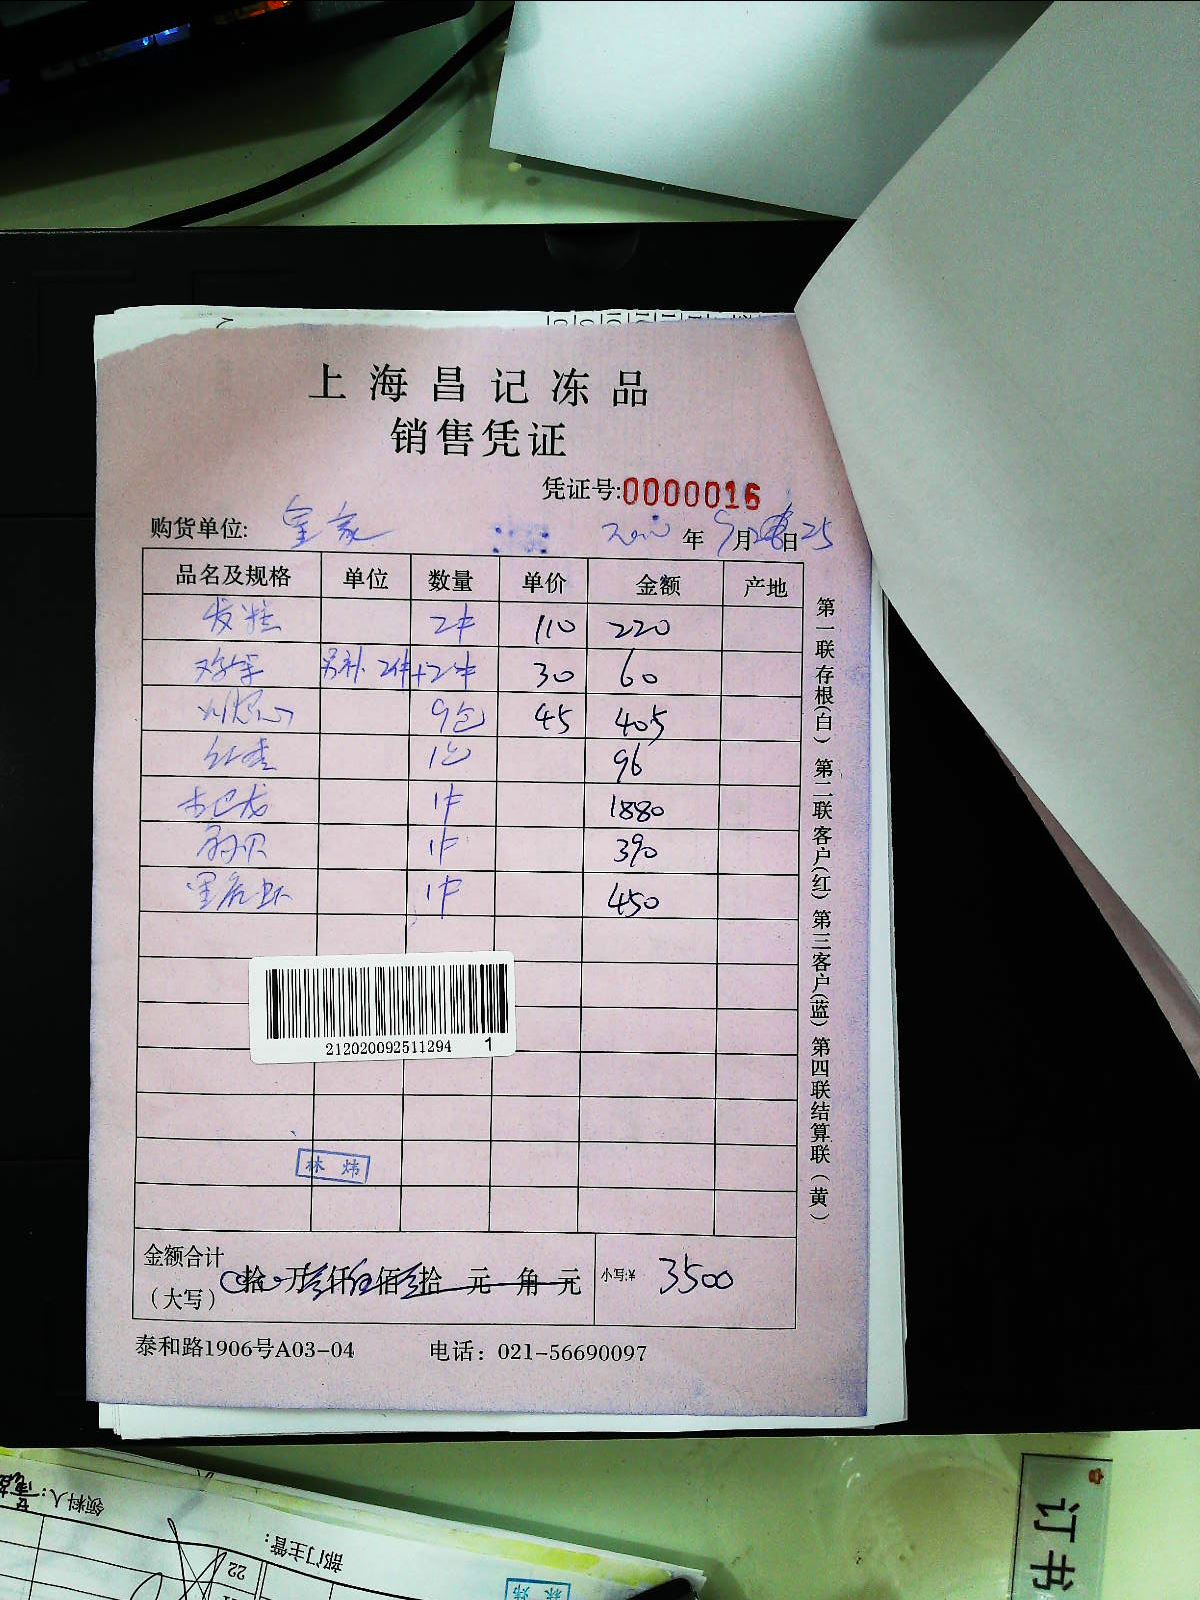 上海昌记冻品
销售凭证
凭证号:0000016
购货单位: 皇家 2020年9月日25
品名及规格 单位 数量 单价 金额 产地
2件 110 220
另补2件 +2件 30 60
9包 45 405
1包 96
1件 1880
1件 390
1件 450
212020092511294 1
林炜
金额合计
(大写) 拾万叁仟伍佰拾元角元 小写:¥ 3500
泰和路1906号A03-04 电话：021-56690097
第一联存根(白) 第二联客户(红) 第三客户(蓝) 第四联结算联(黄)
领料人:
部门主管:
22
林炜
订书